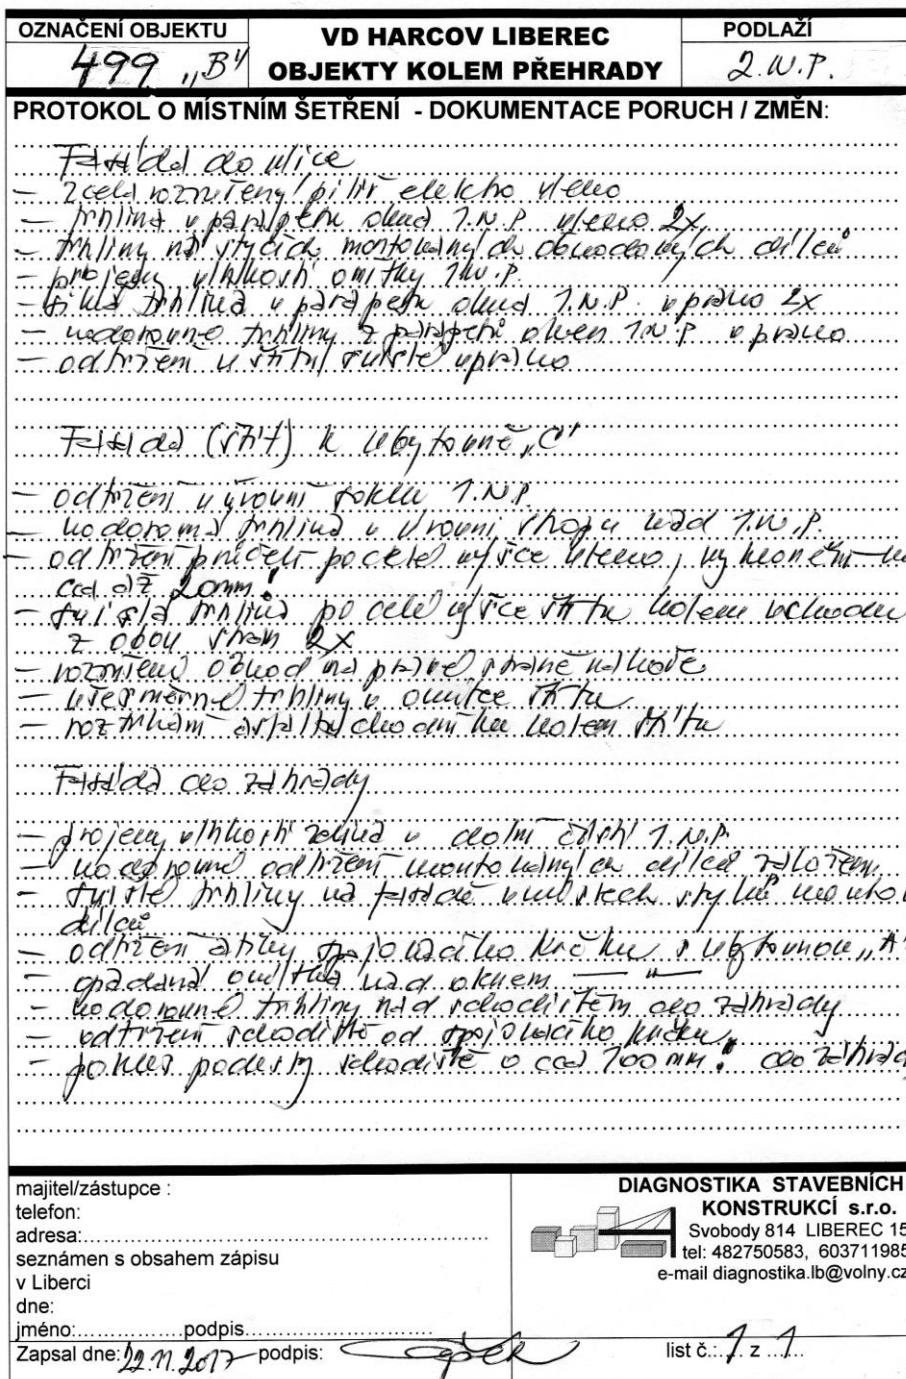 OZNAČENÍ OBJEKTU
499 „B"
VD HARCOV LIBEREC
OBJEKTY KOLEM PŘEHRADY
PODLAŽÍ
2.N.P.
PROTOKOL O MÍSTNÍM ŠETŘENÍ - DOKUMENTACE PORUCH / ZMĚN:
Fasáda do ulice
- zcela rozrušený pilíř elektro vlevo
- trhlina v parapetu okna 1.N.P. vlevo 2x
- trhliny na stycích montovaných obvodových dílců
- projevy vlhkosti omítky 1.N.P.
- šikmá trhlina v parapetu okna 1.N.P. vpravo 2x
- vodorovné trhliny z parapetů oken 1.N.P. vpravo
- odtržení u štítu svislé vpravo
Fasáda (štít) k ubytovně „C"
- odtržení v úrovni soklu 1.N.P.
- vodorovná trhlina v úrovni stropu nad 1.N.P.
- odtržení průčelí po celé výšce vlevo, vyklonění
cca až 20mm!
- svislá trhlina po celé výšce štítu kolem vchodu
z obou stran 2x
- obvod na pravé straně
- všesměrné trhliny v omítce štítu
- roztrhání asfaltu chodníku kolem štítu
Fasáda do zahrady
- projevy vlhkosti zdiva v dolní části 1.N.P.
- vodorovné odtržení montovaných dílců
- svislé trhliny na fasádě v místech styků
dílců
- odtržení atiky spojovacího krčku s ubytovnou „A"
- opadaná omítka nad oknem — " —
- vodorovné trhliny nad schodištěm do zahrady
- odtržení schodiště od spojovacího krčku
- pokles podesty schodiště o cca 100 mm! do
majitel/zástupce :
telefon:
adresa:
seznámen s obsahem zápisu
v Liberci
dne:
jméno:.................podpis
DIAGNOSTIKA STAVEBNÍCH
KONSTRUKCÍ s.r.o.
Svobody 814 LIBEREC 15
tel: 482750583, 603711985
e-mail diagnostika.lb@volny.cz
Zapsal dne: 22.11.2017 podpis:
list č.: 1 z 1